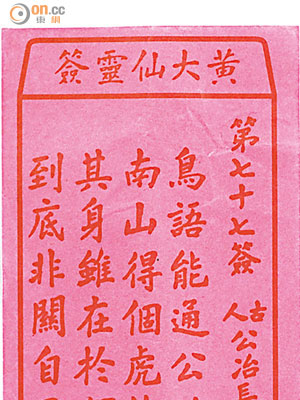 on.cc東網
黃大仙靈簽
第七十七簽
古人公冶長
鳥語能通公
南山得個虎
其身雖在於
到底非關自